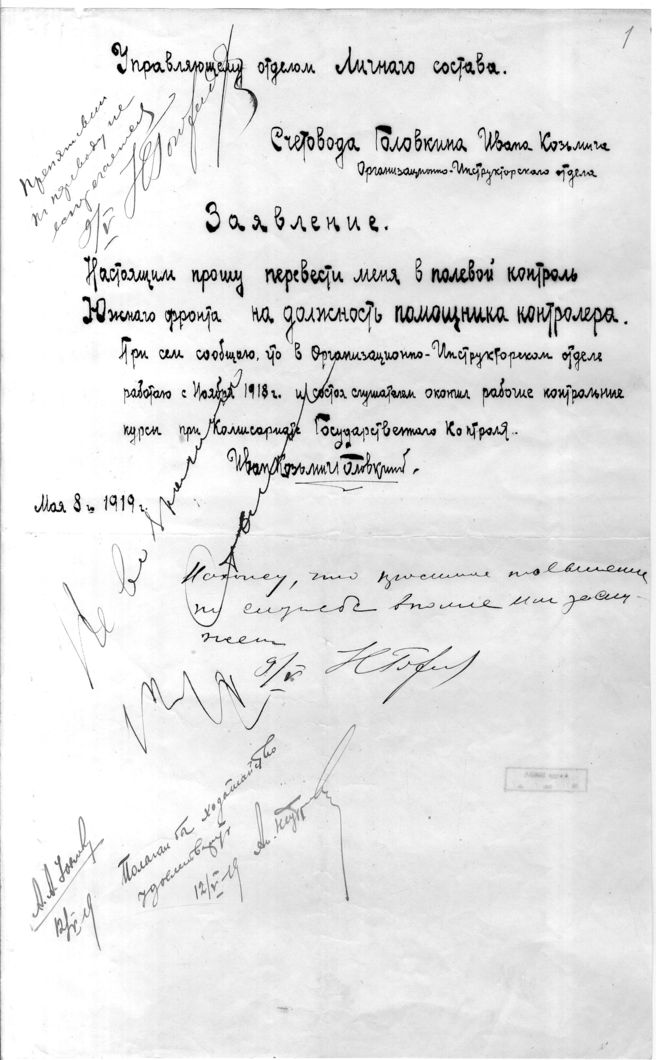 1
Управляющему отделом Личнаго состава.
Препятствий
по переводу не
встречается
9/V
Счетовода Головкина Ивана Козьмича
Организационно-Инструкторскаго отдела
Заявление.
Настоящим прошу перевести меня в полевой контроль
Южнаго фронта на должность помощника контролера.
При сем сообщаю, что в Организационно-Инструкторском отделе
работаю с Ноября 1918 г. и состоя слушателем окончил рабочие контрольные
курсы при Комисариате Государственнаго Контроля.
Иван Козьмич Головкин
Мая 8 г. 1919 г.
Не возражаю
Нахожу, что просимое повышение
по службе вполне им заслу-
жено
9/V
Полагал бы ходатайство
удовлетворить
12/V-19
12/V 19